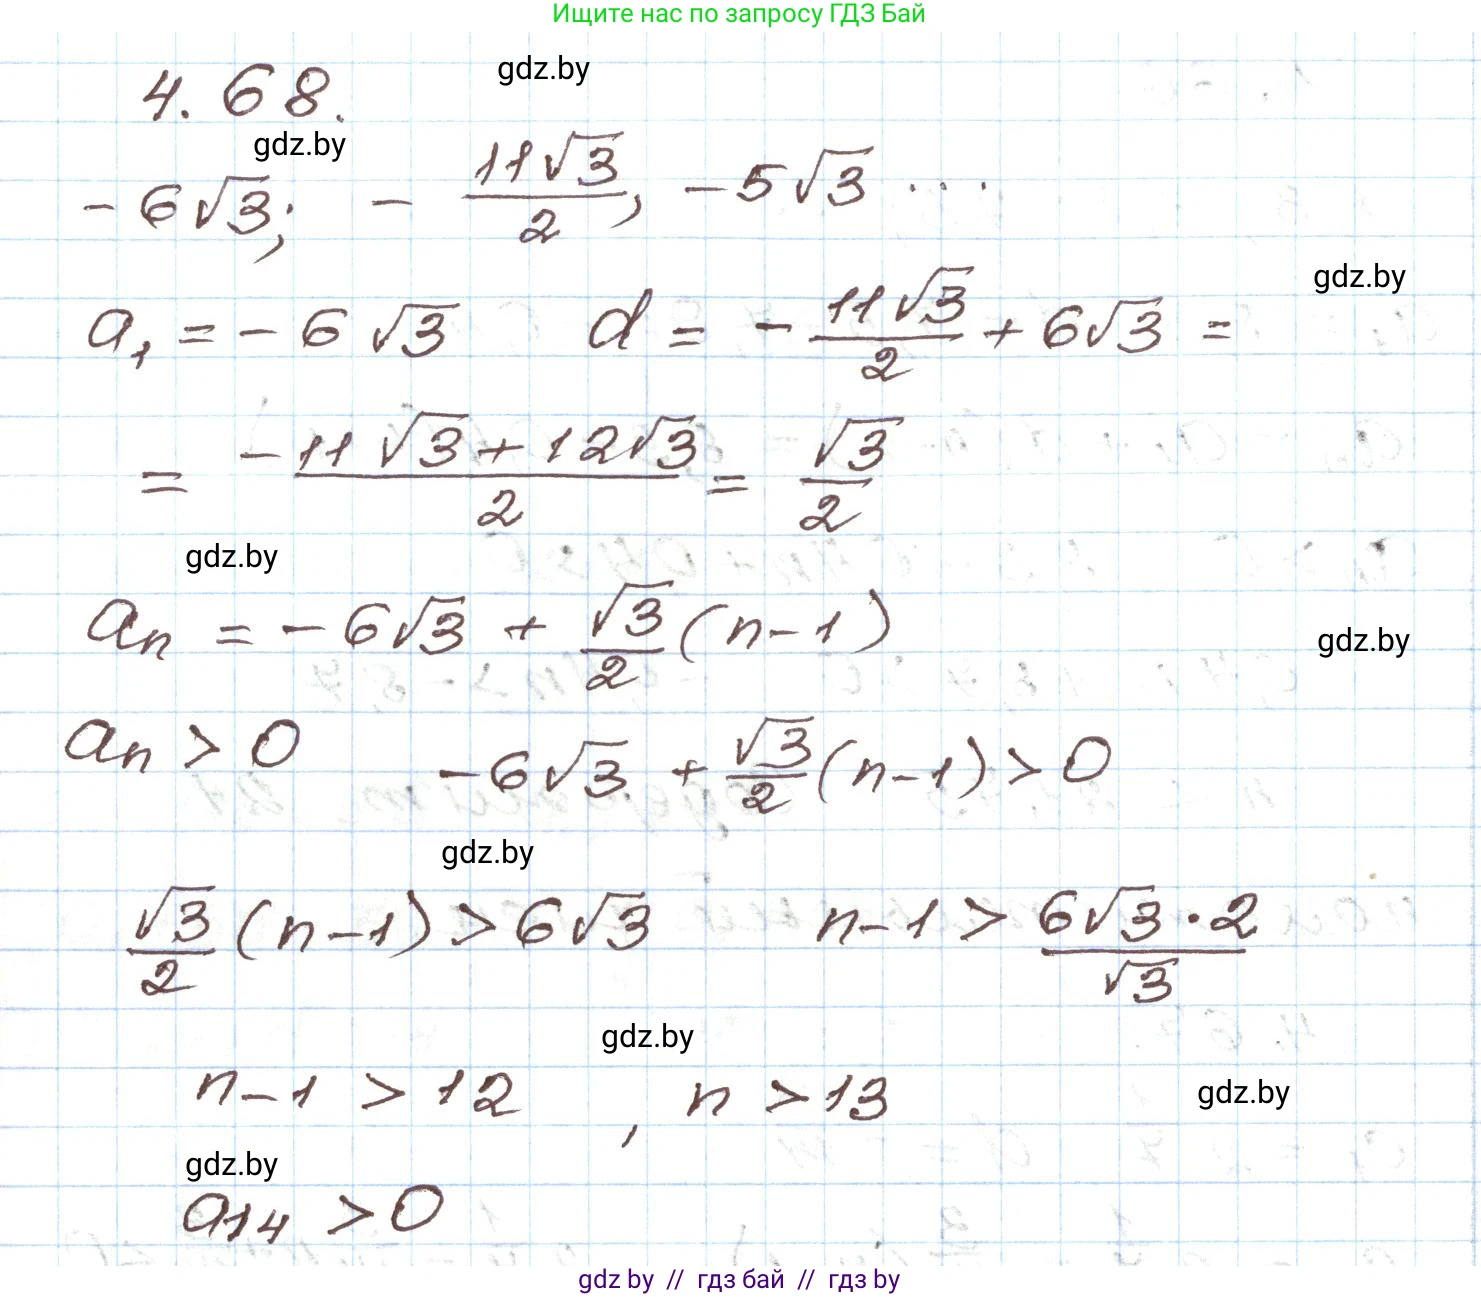 Ищите нас по запросу ГДЗ Бай
4.68.
gdz.by
gdz.by
-6√3; -11√3/2, -5√3 ...
gdz.by
a₁ = -6√3 d = -11√3/2 + 6√3 =
= (-11√3 + 12√3)/2 = √3/2
gdz.by
aₙ = -6√3 + √3/2 (n-1)
gdz.by
aₙ > 0 -6√3 + √3/2 (n-1) > 0
gdz.by
√3/2 (n-1) > 6√3 n-1 > 6√3·2/√3
gdz.by
n-1 > 12, n > 13
gdz.by
gdz.by
a₁₄ > 0
gdz by // гдз бай // гдз by